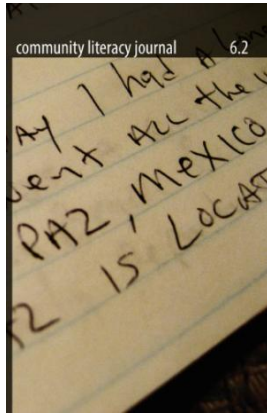 community literacy journal 6.2
AY I had A
vent ALL the
PAZ, MEXICO
AZ IS LOCAT